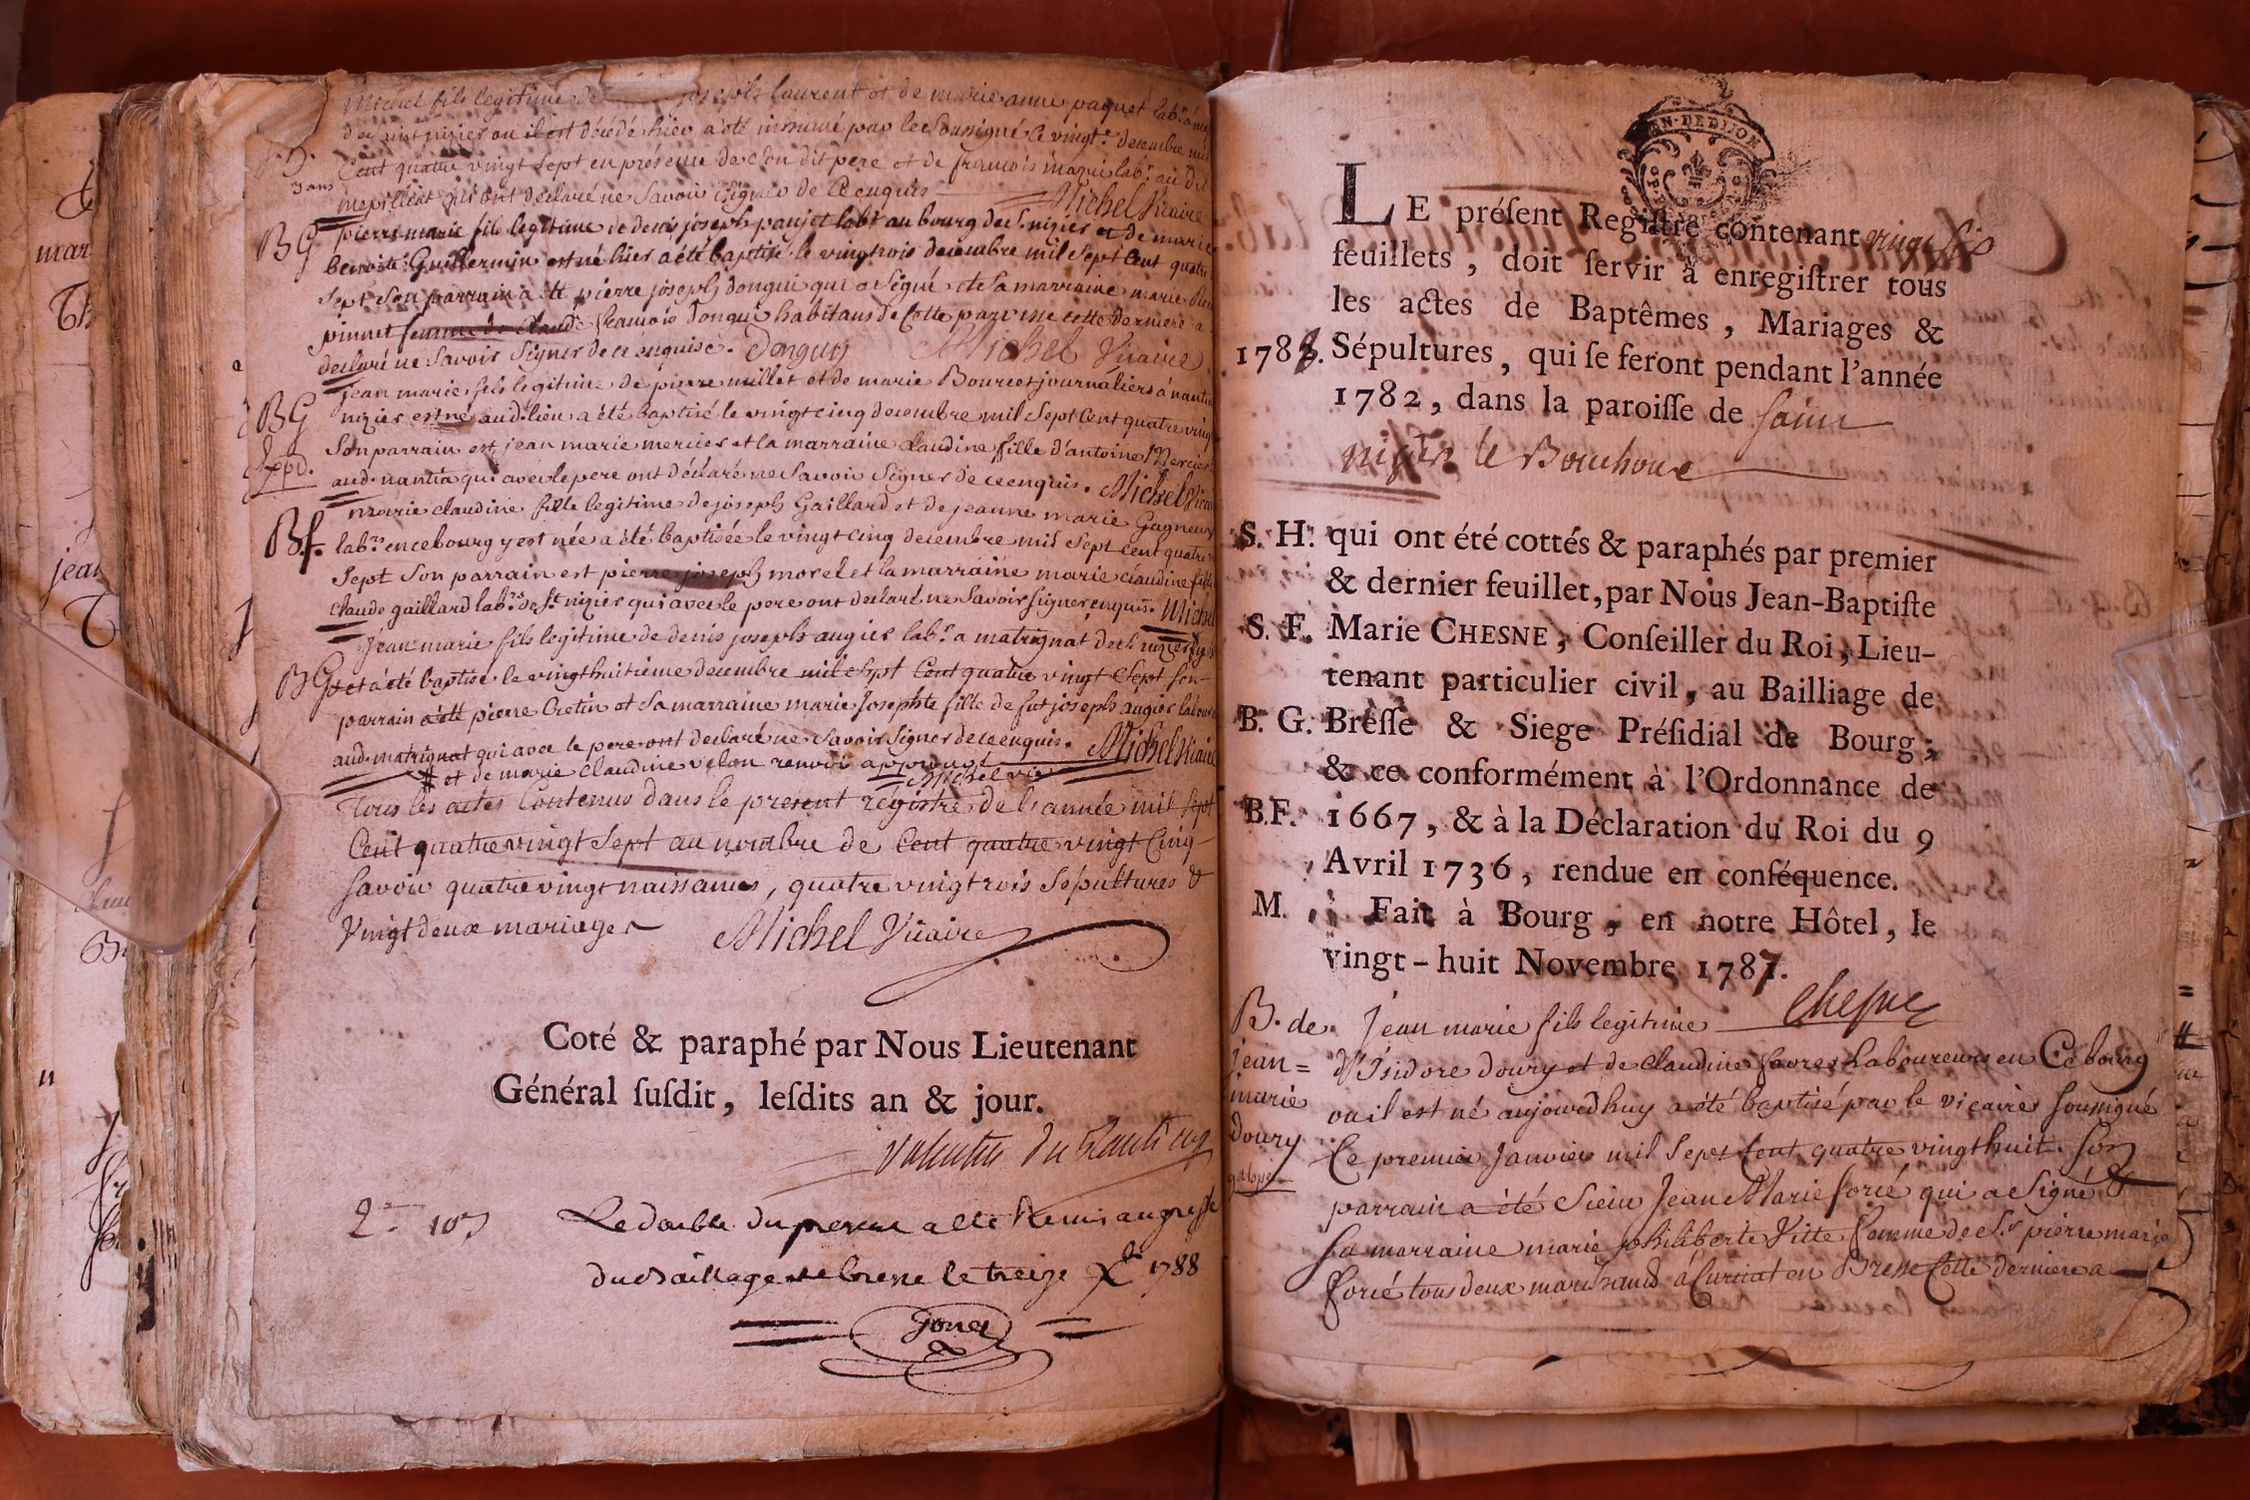 Michel fils legitime de joseph laurent et de marie anne paquet lab.
de nizier ou il est décédé hier a été inhumé par le soussigné le vingt decembre mil
S.
3 ans
Cent quatre vingt sept en présence de son dit pere et de francois lab.r au dit
qui ont declaré ne savoir signer de ce enquis Michel Vicaire
BG
pierre marie fils legitime de denis joseph panjet lab.r au bourg de S.t nizier et de marie
benoite Guillermin est né hier a été baptisé le vingtrois decembre mil sept cent quatre
sept son parrain a été pierre joseph donguy qui a signé et sa marraine marie
pinnet femme de Claude francois donguy habitans de cette paroisse cette derniere a
declaré ne savoir signer de ce enquise. Donguy Michel Vicaire
jean marie fils legitime de pierre millet et de marie Bourcet journaliers à nantia
BG
nizier est né aud. lieu a été baptisé le vingt cinq decembre mil sept cent quatre vingt
son parrain est jean marie mercier et la marraine claudine fille d'antoine Mercier
aud. nantia qui avec le pere ont déclaré ne savoir signer de ce enquis. Michel Vicaire
marie claudine fille legitime de joseph Gaillard et de jeanne marie Gagneux
B.f.
lab.rs en ce bourg y est née a été baptisée le vingt cinq decembre mil sept cent quatre
sept son parrain est pierre joseph morel et la marraine marie claudine fille
claude gaillard lab.r de S.t nizier qui avec le pere ont declaré ne savoir signer enquis. Michel
Jean marie fils legitime de denis joseph augier lab.r a matrignat de S.t nizier
BG
et a été baptisé le vingt huitieme decembre mil sept cent quatre vingt sept son
parrain a été pierre Cretin et sa marraine marie josephte fille de fut joseph augier laboureur
aud. matrignat qui avec le pere ont declaré ne savoir signer de ce enquis. Michel Vicaire
# et de marie claudine velon renvoi approuvé Michel vic.
Tous les actes Contenus dans le present registre de l'année mil sept
Cent quatre vingt sept au nombre de Cent quatre vingt Cinq
savoir quatre vingt naissances, quatre vingt trois sépultures &
Vingt deux mariages Michel Vicaire
Coté & paraphé par Nous Lieutenant
Général ſuſdit, leſdits an & jour.
2
Le double du present a été Remis au greffe
du Bailliage de bresse le treize 1788
Gones
EN·DE DIJON
LE préſent Regiſtre contenant vingt six
feuillets, doit ſervir à enregiſtrer tous
les actes de Baptêmes, Mariages &
1788. Sépultures, qui ſe feront pendant l'année
1782, dans la paroiſſe de saint
nizier le Bouchoux
S. H. qui ont été cottés & paraphés par premier
& dernier feuillet, par Nous Jean-Baptiſte
S. F. Marie CHESNE, Conſeiller du Roi, Lieu-
tenant particulier civil, au Bailliage de
B. G. Breſſe & Siege Préſidial de Bourg;
& ce conformément à l'Ordonnance de
B.F. 1667, & à la Déclaration du Roi du 9
Avril 1736, rendue en conſéquence.
M. Fait à Bourg, en notre Hôtel, le
vingt-huit Novembre 1787.
Chesne
B. de
jean=
marie
doury
Jean marie fils legitime
d'Isidore doury et de claudine favre Laboureurs en Ce bourg
ou il est né aujourd huy a été baptisé par le vicaire soussigné
Ce premier Janvier mil sept Cent quatre vingt huit. son
parrain a été Sieur Jean Marie forié qui a signé &
sa marraine marie philiberte Vitte femme de S.r pierre marie
forié tous deux marchands à Curciat en Bresse Cette derniere a